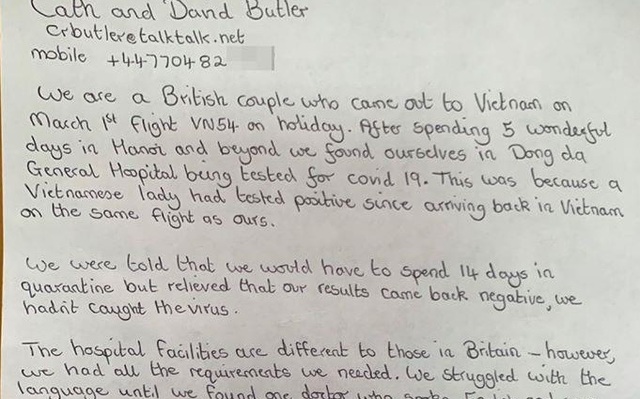 Cath and David Butler
crbutler@talktalk.net
mobile +44770482
We are a British couple who came out to Vietnam on
March 1st flight VN54 on holiday. After spending 5 wonderful
days in Hanoi and beyond we found ourselves in Dong da
General Hospital being tested for covid 19. This was because a
Vietnamese lady had tested positive since arriving back in Vietnam
on the same flight as ours.
We were told that we would have to spend 14 days in
quarantine but relieved that our results came back negative, we
hadn't caught the virus.
The hospital facilities are different to those in Britain - however,
we had all the requirements we needed. We struggled with the
language until we found one doctor who